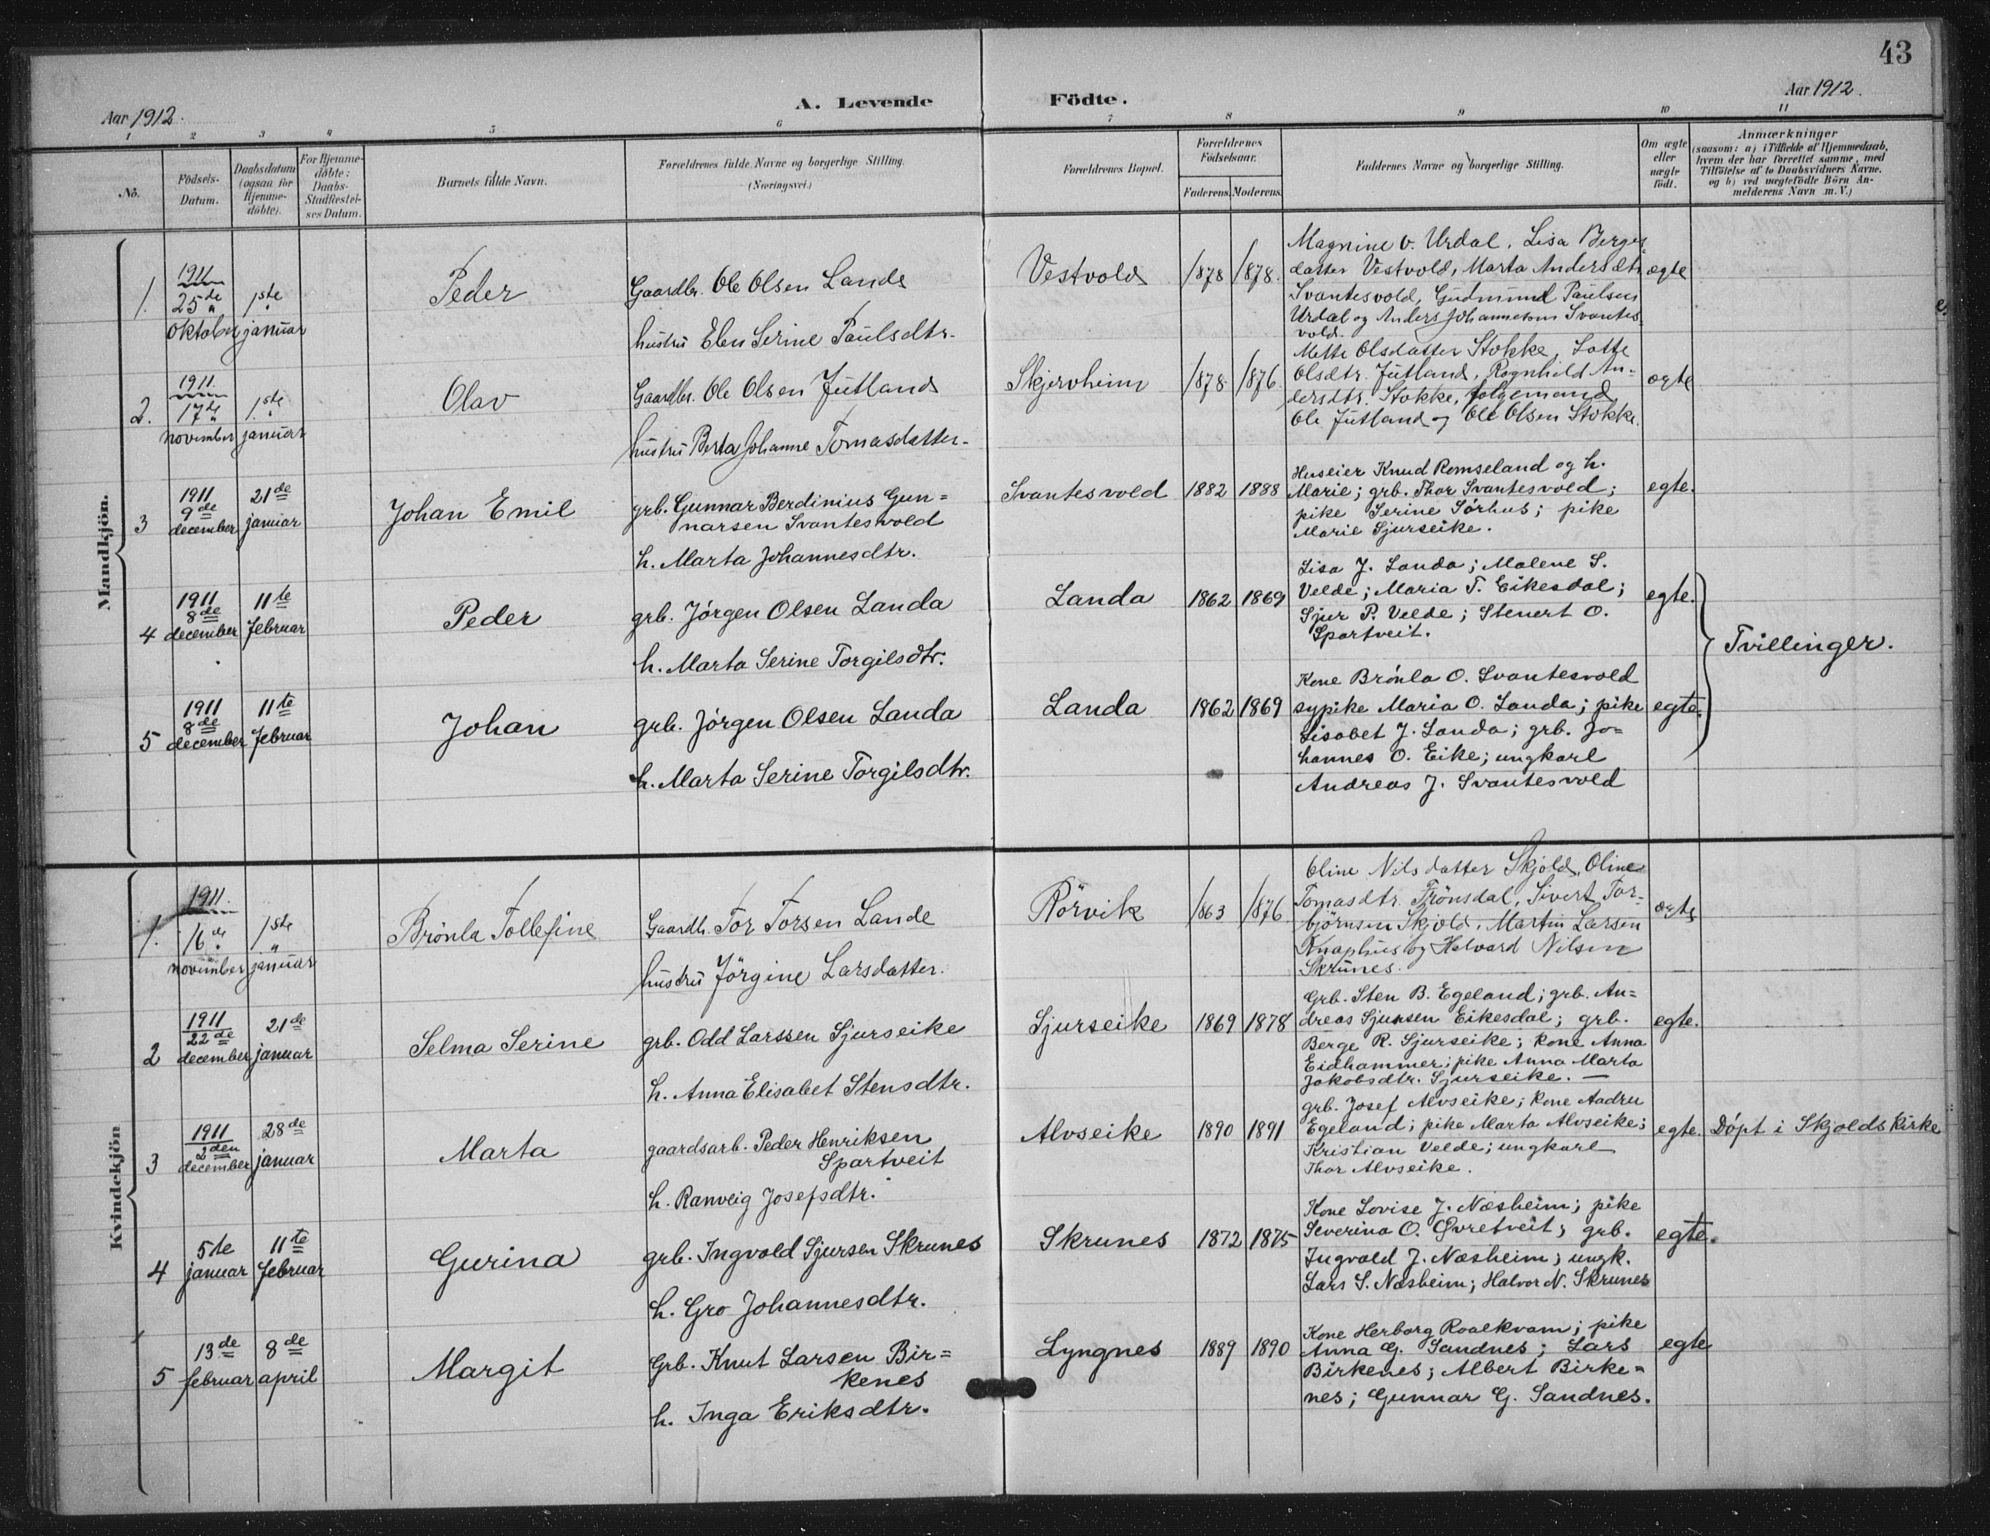 43
Aar 1912.
A. Levende
Födte.
Aar 1912.
1 2 3 4 5 6 7 8 9 10 11
No.
Födsels-
Datum.
Daabsdatum
(ogsaa for
Hjemme-
döbte).
For Hjemme-
döbte:
Daabs-
Stadfæstel-
ses Datum.
Barnets fulde Navn.
Forældrenes fulde Navne og borgerlige Stilling.
(Næringsvei.)
Forældrenes Bopæl.
Forældrenes
Födselsaar.
Faderens. Moderens.
Faddernes Navne og borgerlige Stilling.
Om ægte
eller
uægte
födt.
Anmærkninger
(saasom: a) i Tilfælde af Hjemmedaab,
hvem der har forrettet samme, med
Tilföielse af to Daabsvidners Navne.
og b) ved uægtefödte Börn An-
melderens Navn m. V.)
Mandkjön.
1.
1911
25de
oktober
1ste
januar
Peder
Gaardbr. Ole Olsen Lande
hustru Elen Serine Paulsdtr.
Vestvold
1878 1878.
Magnine O. Urdal, Lisa Berges
datter Vestvold, Marta Andersdtr
Svantesvold, Gudmund Paulsen
Urdal og Anders Johannesen Svantes-
vold.
ægte
2.
1911.
17de
november
1ste
januar
Olav
Gaardbr. Ole Olsen Jutland
hustru Berta Johanne Tomasdatter.
Skjervheim
1878. 1876.
Mette Olsdatter Stokke, Lotte
Olsdtr. Jutland, Ragnhild An-
dersdtr. Stokke, følgemand
Ole Jutland og Ole Olsen Stokke.
ægte
3
1911
9de
december
21de
januar
Johan Emil
grb. Gunnar Berdinius Gun=
narsen Svantesvold
h. Marta Johannesdtr.
Svantesvold
1882 1888
Huseier Knud Romseland og h.
Marie; grb. Thor Svantesvold;
pike Serine Sørhus; pike
Marie Sjurseike.
egte.
4
1911
8de
december
11te
februar
Peder
grb. Jörgen Olsen Landa
h. Marta Serine Torgilsdtr.
Landa
1862 1869
Lisa J. Landa; Malene S.
Velde; Maria T. Eikesdal;
Sjur P. Velde; Stenert O.
Spartveit.
egte.
Tvillinger.
5
1911
8de
december
11te
februar
Johan
grb. Jörgen Olsen Landa
h. Marta Serine Torgilsdtr.
Landa
1862 1869
Kone Brønla O. Svantesvold
sypike Maria O. Landa; pike
Lisabet J. Landa; grb. Jo=
hannes O. Eike; ungkarl
Andreas J. Svantesvold
egte.
Kvindekjön
1.
1911.
16de
november
1ste
januar
Brönla Tollefine
Gaardb. Tor Torsen Lande
hustru Jörgine Larsdatter.
Rörvik
1863 1876.
Oline Nilsdatter Skjold, Oline
Tomasdtr. Frönsdal, Sivert Tor-
björnsen Skjold, Martin Larsen
Knaphus og Halvard Nilsen
Skrunes.
ægte
2
1911
22de
december
21de
januar
Selma Serine
grb. Odd Larssen Sjurseike
h. Anna Elisabet Stensdtr.
Sjurseike
1869 1878
Grb. Sten B. Egeland; grb. An=
dreas Sjursen Eikesdal; grb.
Berge R. Sjurseike; kone Anna
Eidhammer; pike Anna Marta
Jakobsdtr. Sjurseike. —
egte.
3
1911
2den
december
28de
januar
Marta
gaardsarb. Peder Henriksen
Spartveit
h. Ranveig Josefsdtr.
Alvseike
1890 1891
grb. Josef Alvseike; kone Aadru
Egeland; pike Marta Alvseike;
Kristian Velde; ungkarl
Thor Alvseike.
egte.
Döpt i Skjolds Kirke
4
5te
januar
11te
februar
Gurina
grb. Ingvald Sjursen Skrunes
h. Gro Johannesdtr.
Skrunes
1872 1875
Kone Lovise J. Næsheim; pike
Severina O. Øvretveit; grb.
Ingvald J. Næsheim; ungk.
Lars S. Næsheim; Halvor N. Skrunes
egte.
5
13de
februar
8de
april
Margit
Grb. Knut Larsen Bir=
kenes
h. Inga Eriksdtr.
Lyngnes
1889 1890
Kone Herborg Roalkvam; pike
Anna G. Sandnes; Lars
Birkenes; Albert Birke=
nes; Gunnar G. Sandnes.
egte